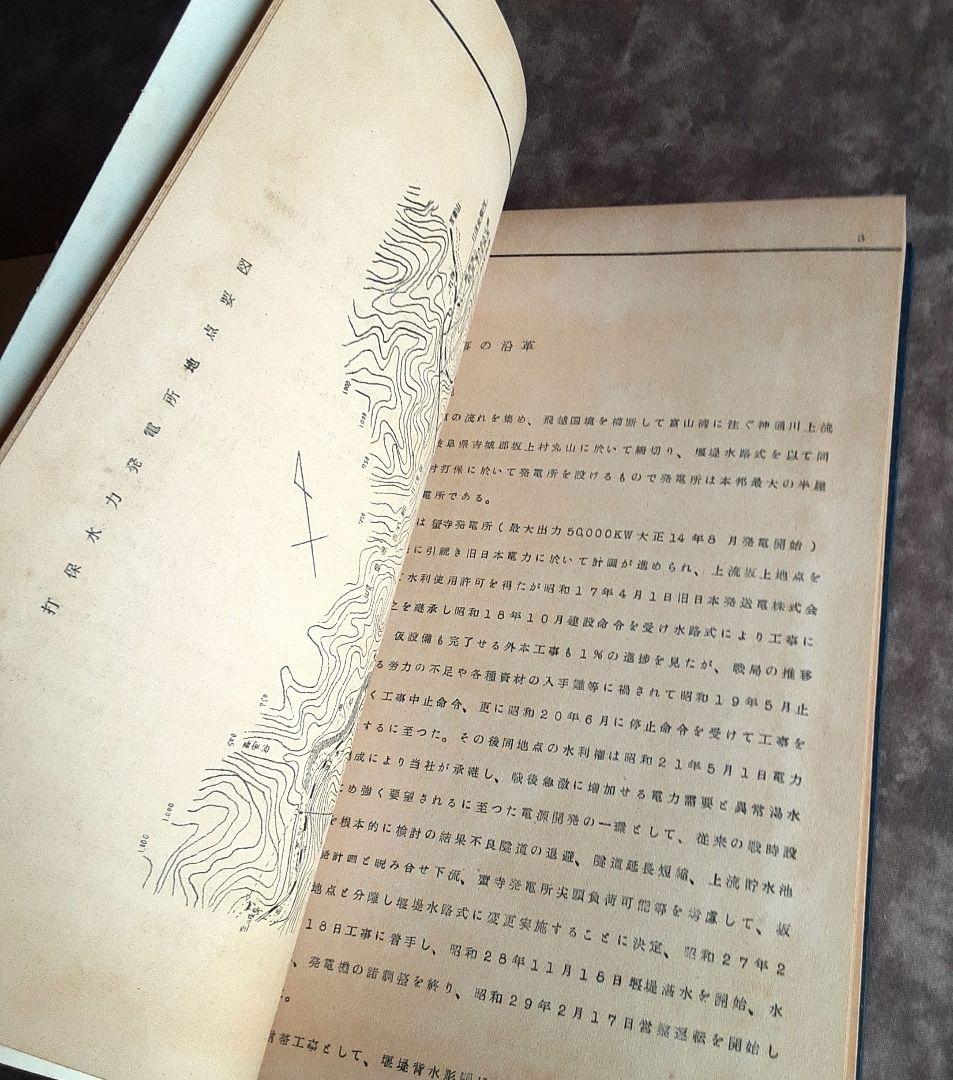 打保水力発電所地点要図
1,000
1,000
1,400
13
事の沿革
の流れを集め、飛越国境を横断して富山湾に注ぐ神通川上流
阜県吉城郡坂上村丸山に於いて締切り、堰堤水路式を以て同
村打保に於いて発電所を設けるもので発電所は本邦最大の半屋
電所である。
は蟹寺発電所(最大出力50,000KW大正14年8月発電開始)
に引続き旧日本電力に於いて計画が進められ、上流坂上地点を
水利使用許可を得たが昭和17年4月1日旧日本発送電株式会
之を継承し昭和18年10月建設命令を受け水路式により工事に
仮設備も完了せる外本工事も1%の進捗を見たが、戦局の推移
る労力の不足や各種資材の入手難等に禍されて昭和19年5月止
く工事中止命令、更に昭和20年6月に停止命令を受けて工事を
するに至つた。その後同地点の水利権は昭和21年5月1日電力
成により当社が承継し、戦後急激に増加せる電力需要と異常渇水
め強く要望されるに至つた電源開発の一環として、従来の戦時設
を根本的に検討の結果不良隧道の退避、隧道延長短縮、上流貯水池
計画と睨み合せ下流、蟹寺発電所尖頭負荷可能等を考慮して、坂
地点と分離し堰堤水路式に変更実施することに決定、昭和27年2
18日工事に着手し、昭和28年11月16日堰堤湛水を開始、水
、発電機の諸調整を終り、昭和29年2月17日営業運転を開始し
。
帯工事として、堰堤背水影